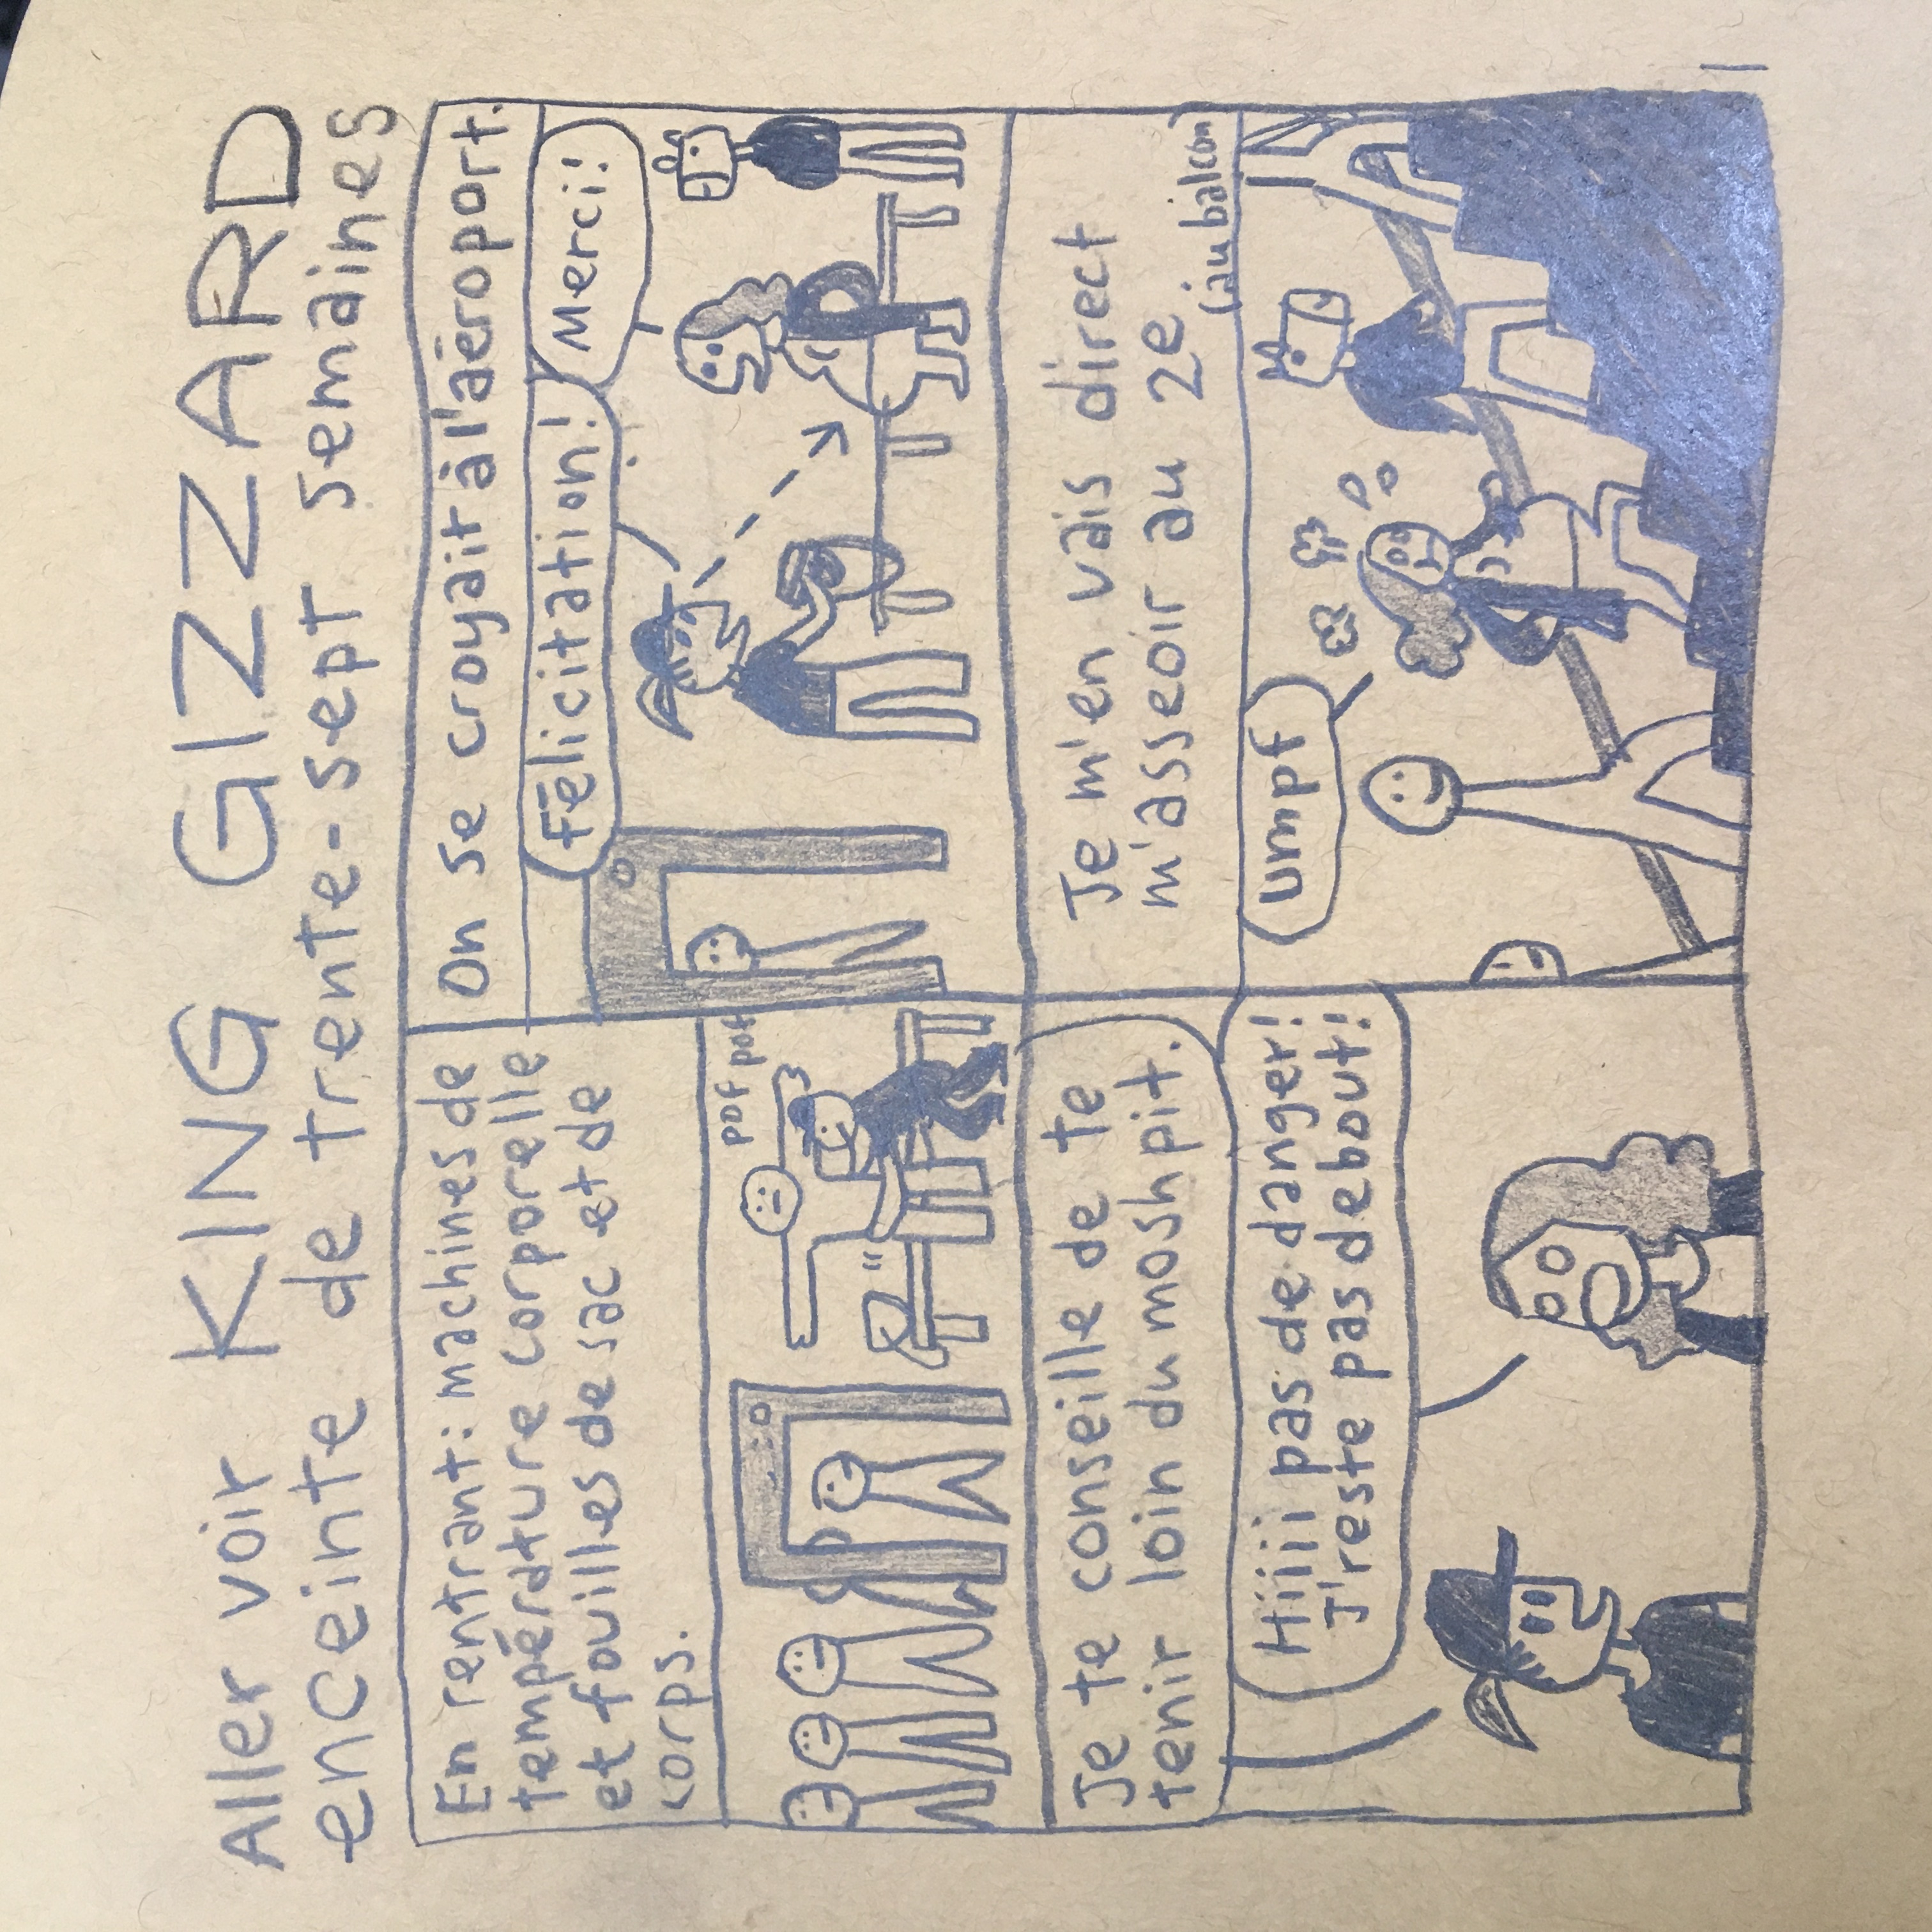 Aller voir KING GIZZARD
enceinte de trente-sept semaines
En rentrant: machines de
température corporelle
et fouilles de sac et de
corps.
pof pof
On se croyait à l'aéroport.
Félicitation!
Merci!
Je te conseille de te
tenir loin du moshpit.
Hiiii pas de danger!
J'reste pas debout!
Je m'en vais direct
m'asseoir au 2e
(au balcon)
umpf
1